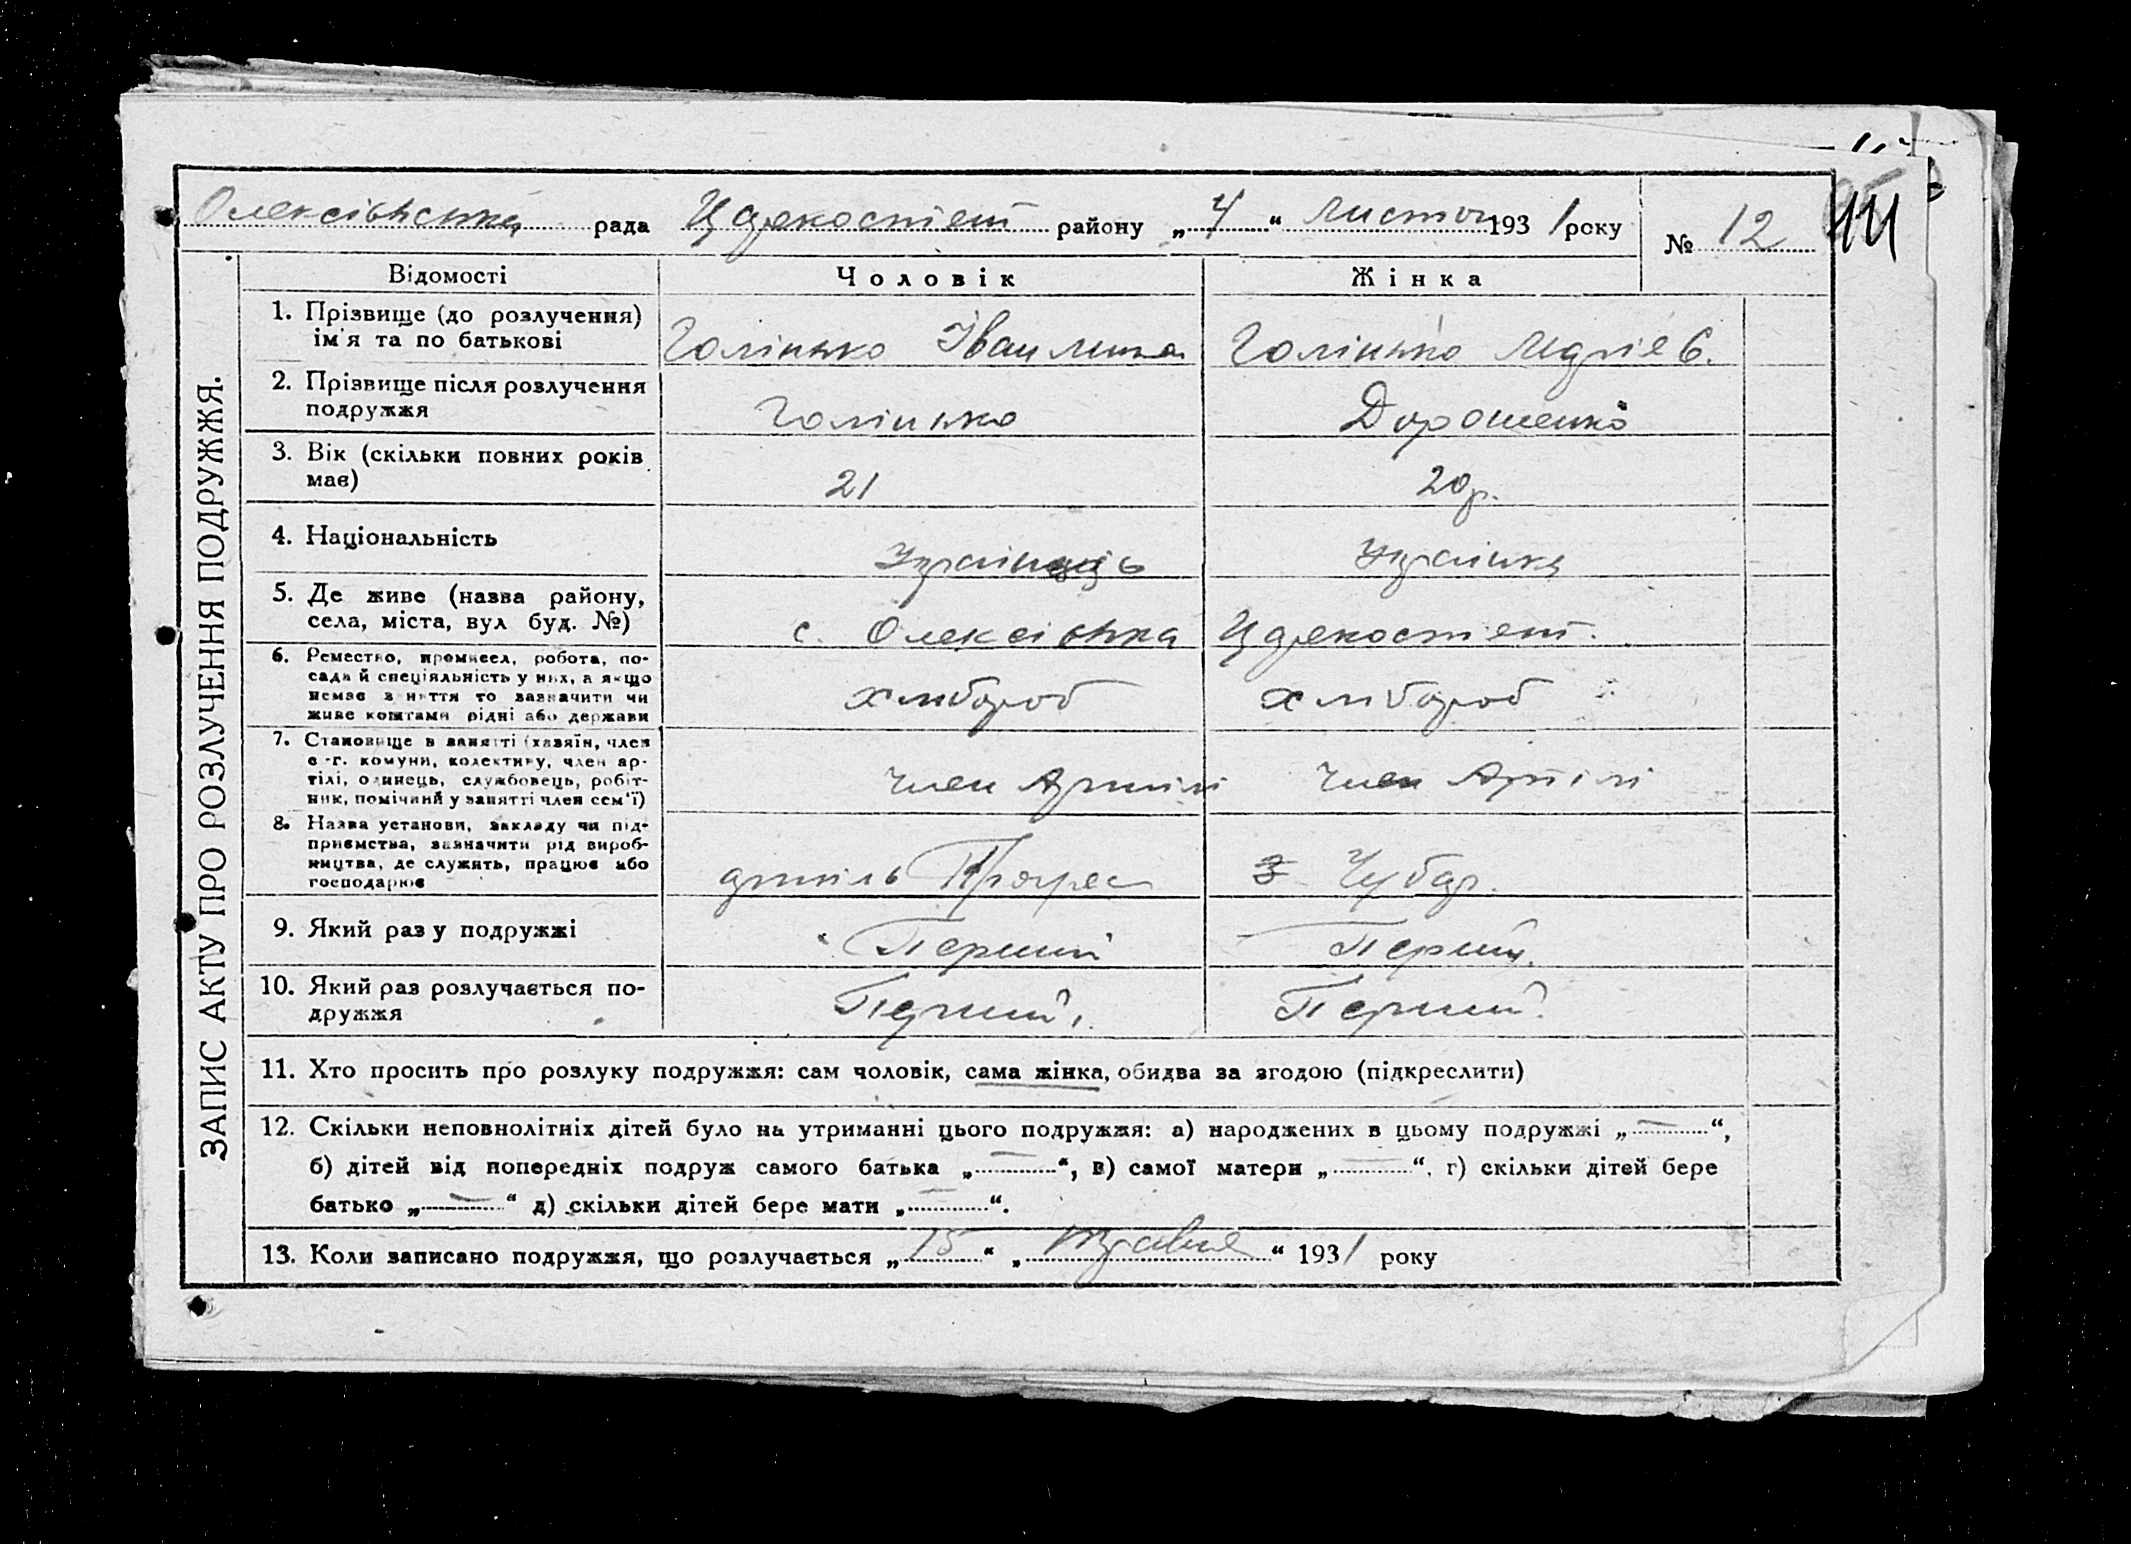 Олексієвська рада Царекостент району „ 4 “ листоп 1931 року № 12
44
ЗАПИС АКТУ ПРО РОЗЛУЧЕННЯ ПОДРУЖЖЯ.
Відомості Чоловік Жінка
1. Прізвище (до розлучення) ім'я та по батькові
Голінько Іван Голінько Марія Є.
2. Прізвище після розлучення подружжя
Голінько Дорошенко
3. Вік (скільки повних років має)
21 20 р.
4. Національність
Українка
5. Де живе (назва району, села, міста, вул буд. №)
с. Олексієвка
6. Ремество, промисел, робота, посада й спеціяльність у них, а якщо немає заняття то зазначити чи живе коштами рідні або держави
хлібороб хлібороб
7. Становище в занятті (хазяїн, член с.-г. комуни, колективу, член артілі, одинець, службовець, робітник, помічний у занятті член сем'ї)
Член Артілі Член Артілі
8. Назва установи, закладу чи підприємства, зазначити рід виробництва, де служить, працює або господарює
артіль Прогрес Чубар.
9. Який раз у подружжі
Перший Перший
10. Який раз розлучається подружжя
Перший Перший
11. Хто просить про розлуку подружжя: сам чоловік, сама жінка, обидва за згодою (підкреслити)
12. Скільки неповнолітніх дітей було на утриманні цього подружжя: а) народжених в цьому подружжі „ — “,
б) дітей від попередніх подруж самого батька „ — “, в) самої матери „ — “. г) скільки дітей бере
батько „ — “ д) скільки дітей бере мати „ — “.
13. Коли записано подружжя, що розлучається „ 15 “ „ травня “ 1931 року